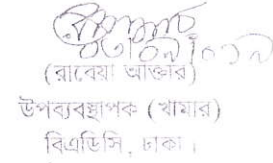 (রাবেয়া আক্তার)
উপব্যবস্থাপক (খামার)
বিএডিসি, ঢাকা।